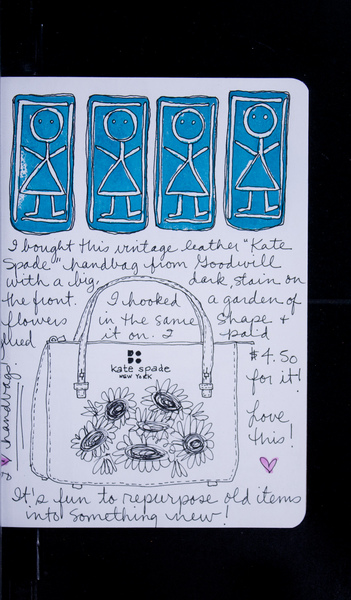 I bought this vintage leather "Kate
Spade" handbag from Goodwill
with a big dark stain on
the front. I hooked a garden of
flowers in the same shape &
glued it on. I paid
$4.50
for it!
kate spade
NEW YORK
Love
this!
I ♥ handbags
It's fun to repurpose old items
into something new!